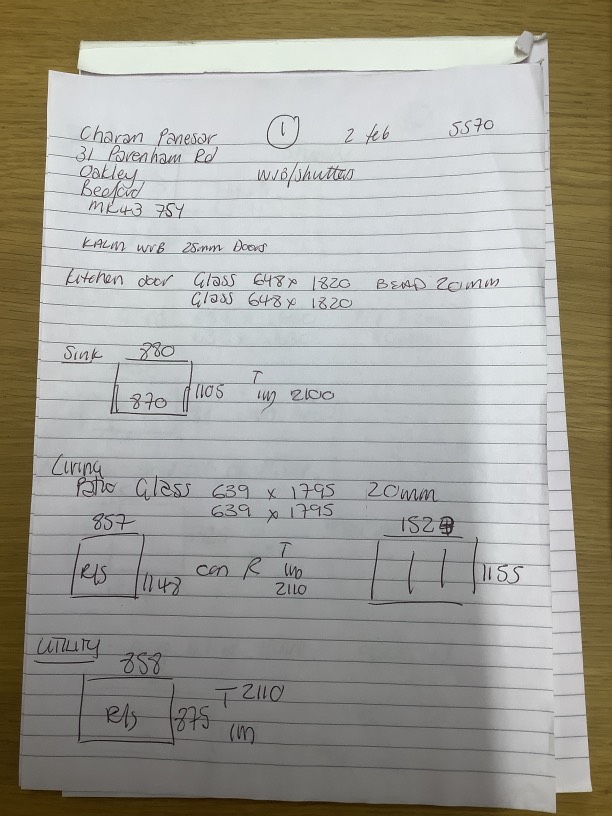 Charan Panesar ① 2 feb 5570
31 Pavenham Rd
Oakley W/B/shutters
Beeford
MK43 7SY
KALM WVB 25mm Doors
Kitchen door Glass 648 x 1820 BEAD 20mm
Glass 648 x 1820
Sink 880
870 1105 T 1m 2100
Living
Patio Glass 639 x 1795 20mm
639 x 1795
857 152
R/S 1148 con R T 1155
2110
UTILITY
858
R/S 875 T 2110
1m